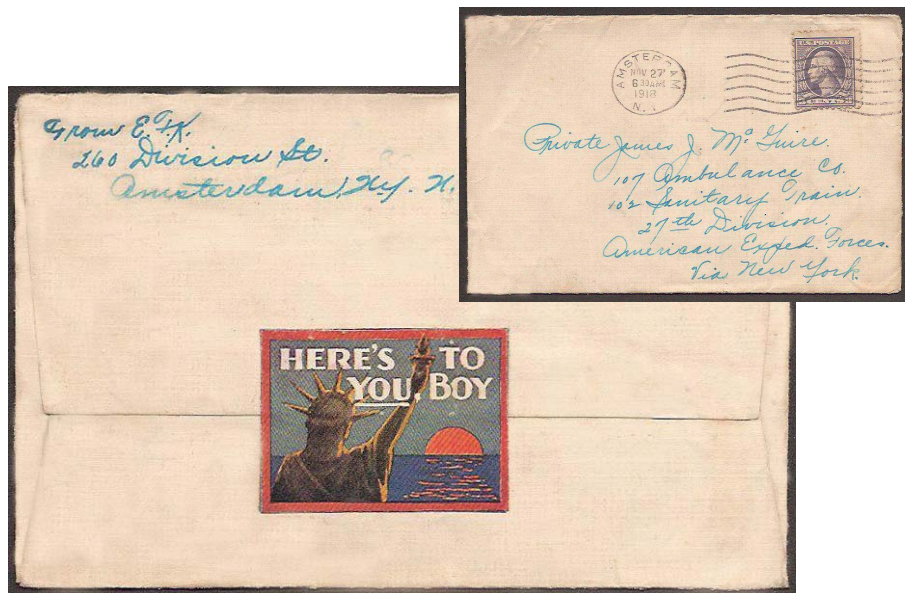 From E.F.K.
260 Division St.
Amsterdam, N.Y.
HERE'S TO
YOU, BOY
AMSTERDAM
NOV 27
6 30 AM
1918
N.Y.
U.S. POSTAGE
CENTS
Private James J. McGuire.
107 Ambulance Co.
102 Sanitary Train.
27th Division.
American Exped. Forces.
Via New York.